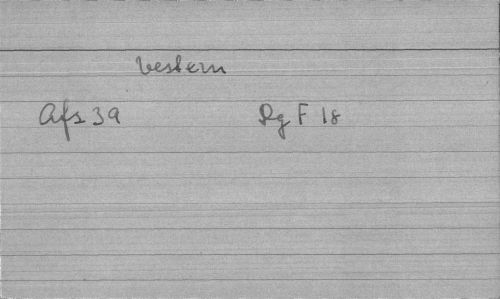 Vestern
Afs 39 Rg F 18